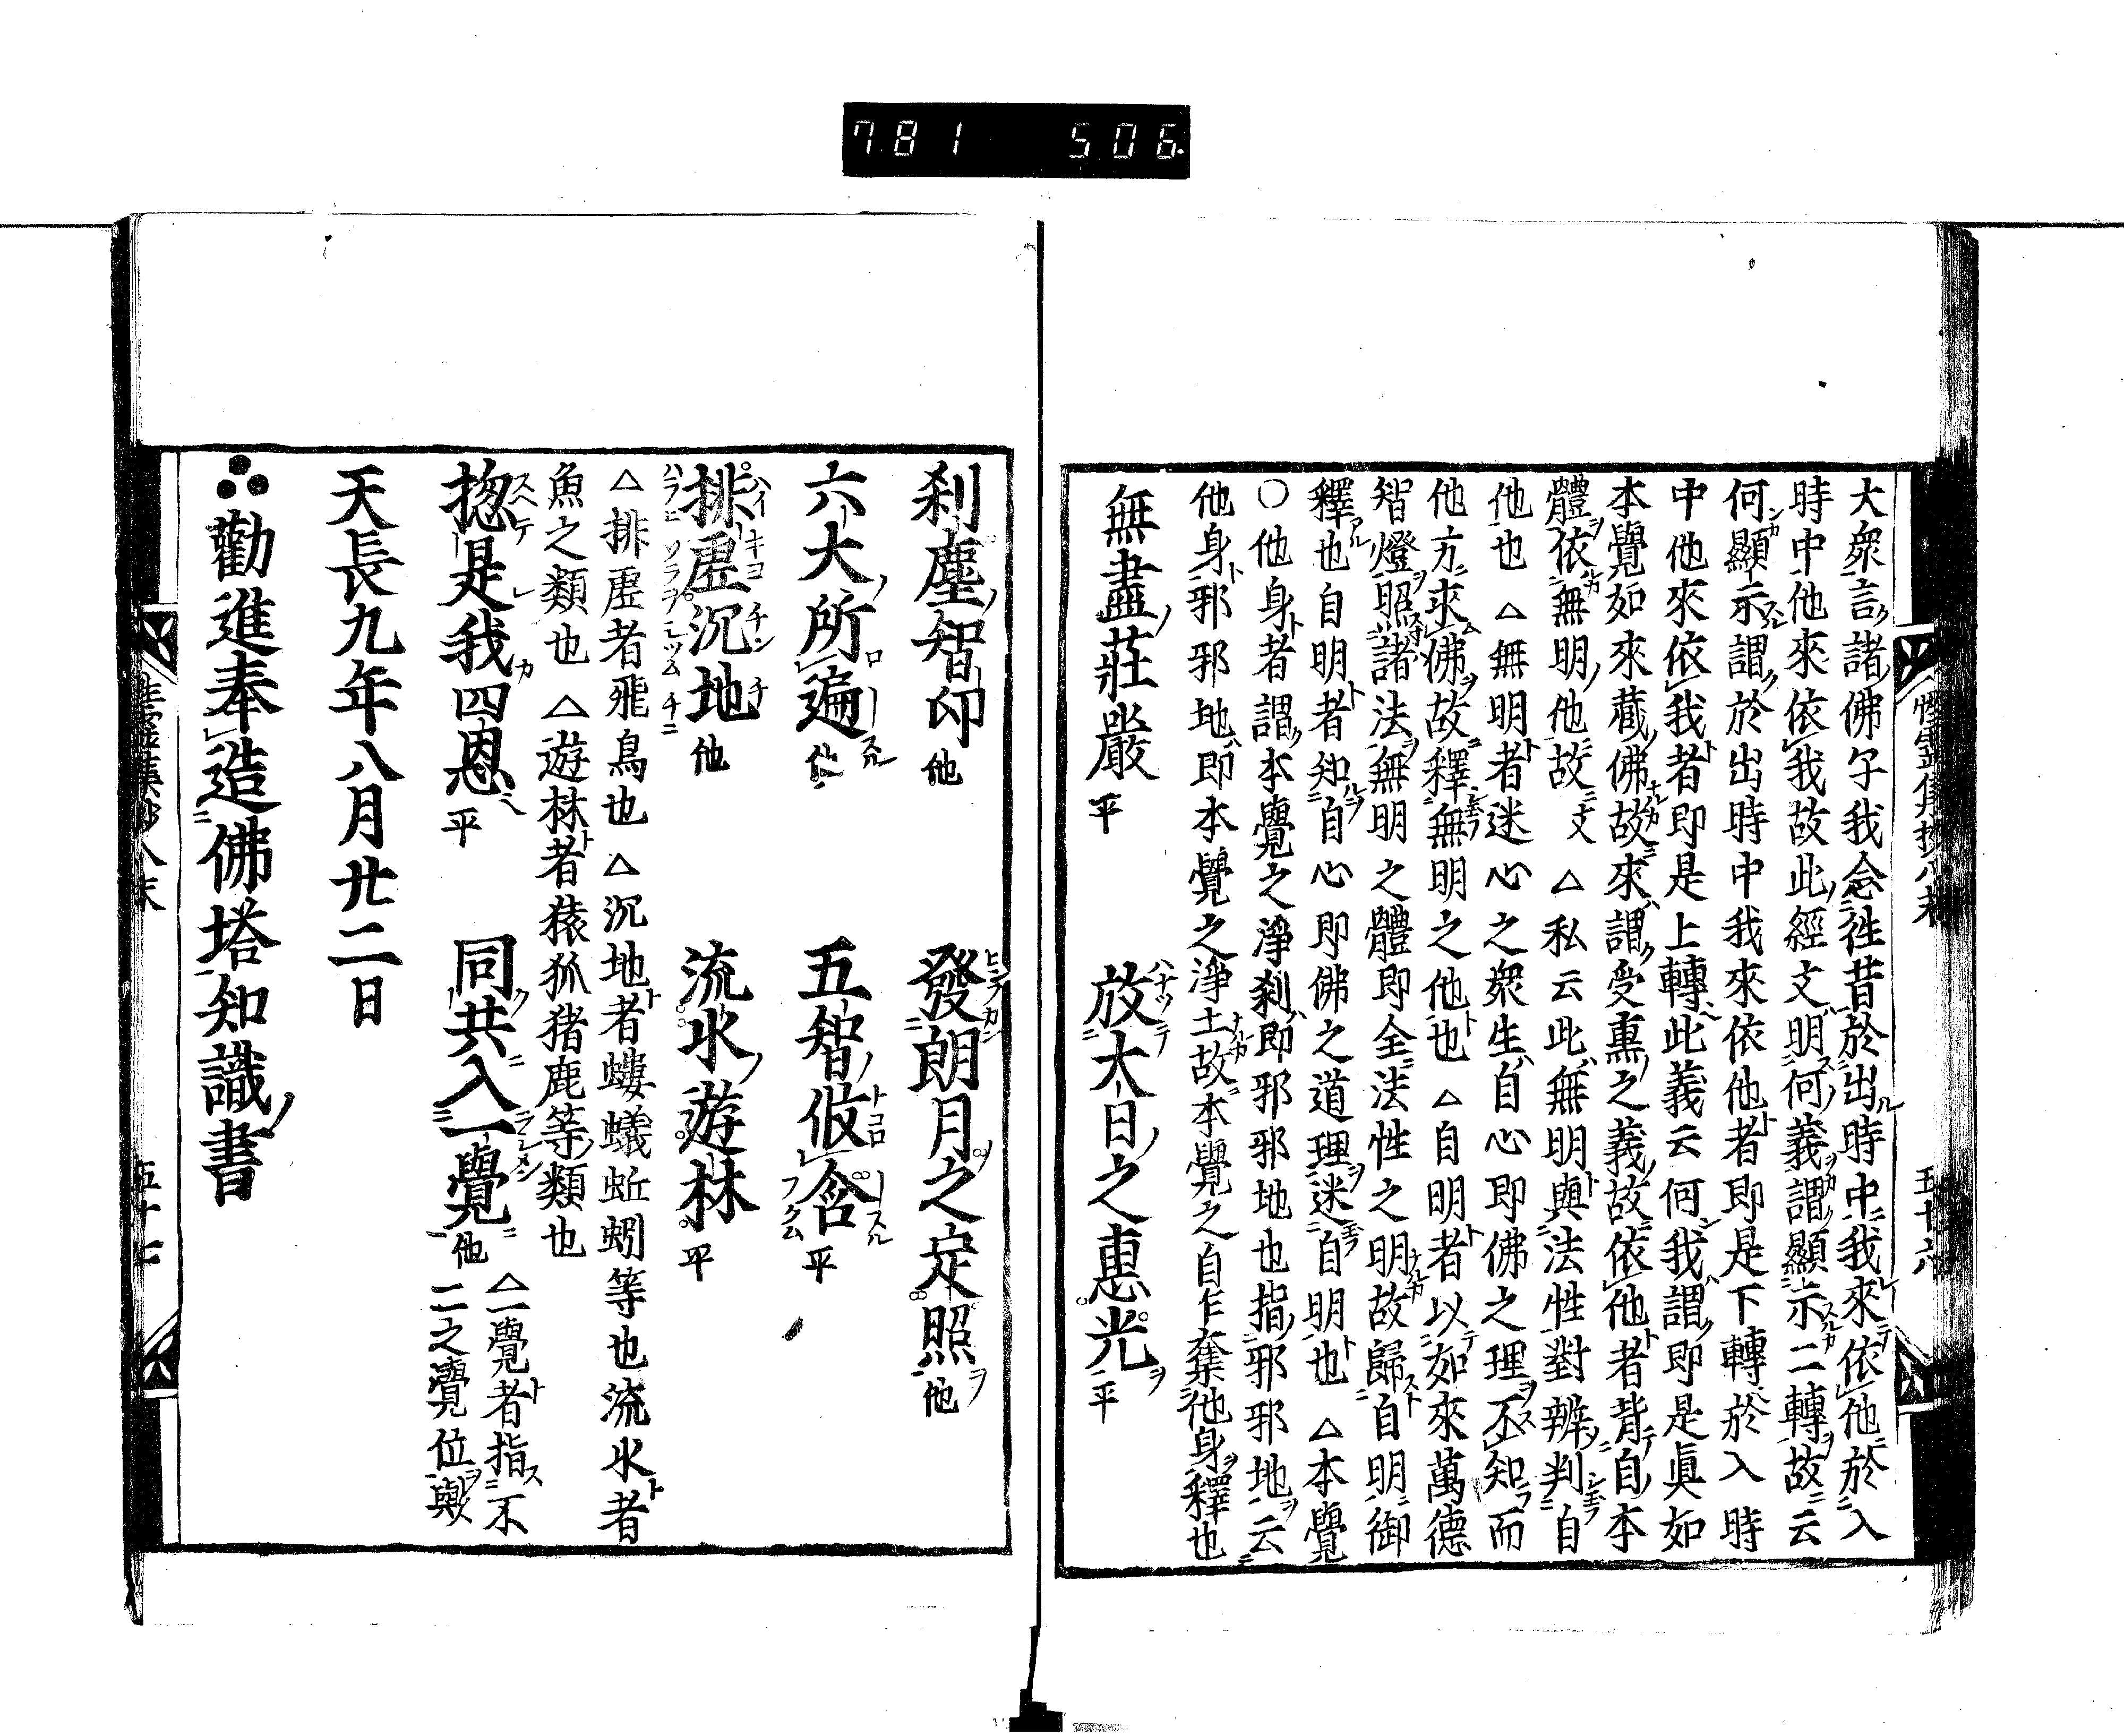 781 506
大衆言諸佛子我念徃昔於出時中我來依他於入
時中他來依我故此經文明何義謂顯示二轉故云
何顯示謂於出時中我來依他者即是下轉於入時
中他來依我者即是上轉此義云何我謂即是眞如
本覺如來藏佛故來謂受熏之義故依他者背自本
體依無明他故文 △私云此無明與法性對辨判自
他也 △無明者迷心之衆生自心即佛之理不知而
他方求佛故釋無明之他也 △自明者以如來萬德
智燈照諸法無明之體即全法性之明故歸自明御
釋也自明者知自心即佛之道理迷自明也 △本覺
○他身者謂本覺之淨刹即邪邪地也指邪邪地云
他身邪邪地即本覺之淨土故本覺之自乍奪他身釋也
無盡莊嚴平 放大日之惠光平
刹塵智印他 發朗月之定照他
六大所遍他 五智攸含平
排虛沉地他 流水遊林平
△排虛者飛鳥也 △沉地者螻蟻蚯蚓等也流水者
魚之類也 △遊林者猿狐猪鹿等類也
揔是我四恩平 同共入一覺他 △一覺者指不
二之覺位歟
天長九年八月廿二日
勸進奉造佛塔知識書
五十七